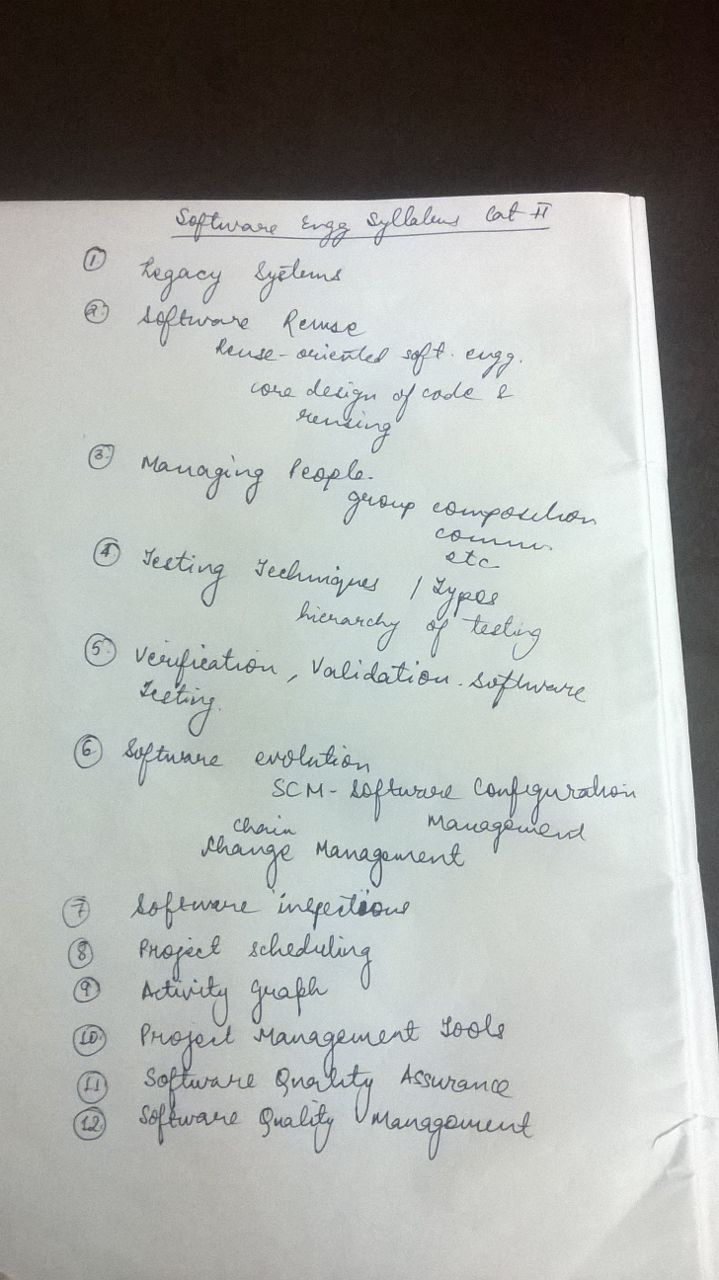 Software Engg Syllabus Cat II
① Legacy Systems
2. Software Reuse
Reuse-oriented soft. engg.
core design of code &
reusing
3. Managing People.
group composition
comm.
etc
4 Testing Techniques / Types
hierarchy of testing
5. Verification, Validation. Software
Testing.
6. Software evolution
SCM - Software Configuration
Management
chain
change Management
7 Software inspections
8 Project scheduling
9 Activity graph
10. Project Management Tools
11 Software Quality Assurance
12 Software Quality Management